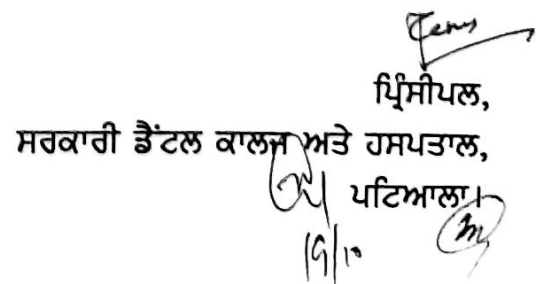 ਪ੍ਰਿੰਸੀਪਲ,
ਸਰਕਾਰੀ ਡੈਂਟਲ ਕਾਲਜ ਅਤੇ ਹਸਪਤਾਲ,
ਪਟਿਆਲਾ।
19/10